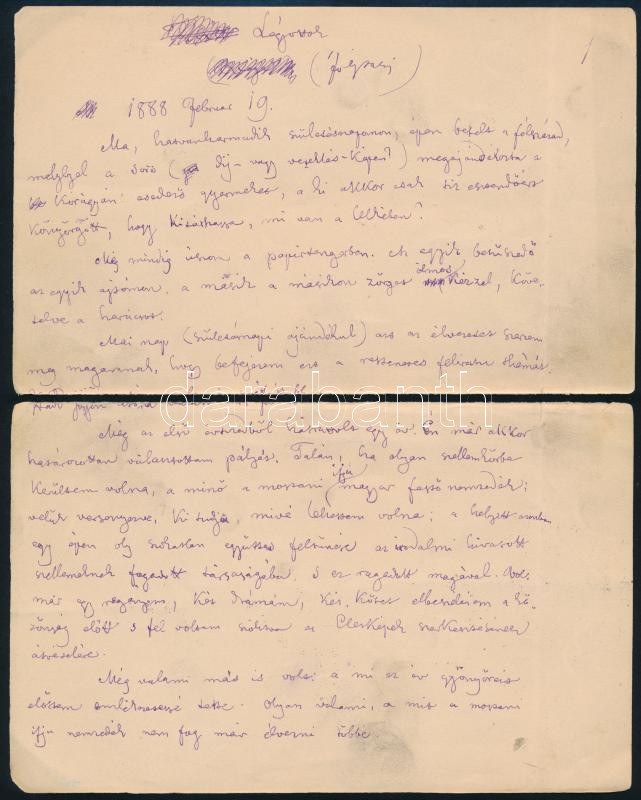 Légyottok
(folytatás)
1888 Februar 19.
Ma, hatvanharmadik születésnapomon, épen betelt a félszázad,
melylyel a sors ( díj- vagy vezeklés-képen?) megajándékozta a
gyermeket, a ki akkor csak tíz esztendőért
könyörgött, hogy kitárhassa, mi van a lelkében?
Még mindig úszom a papirtengerben. Az egyik
az egyik ajtómon, a másik a másikon zörget álmos kézzel, köve-
telve a harácsot.
Mai nap (születésnapi ajándékul) azt az élvezetet szerzem
meg magamnak, hogy befejezem ezt a rettenetes feliratu thémát.
Még az első évtizedből hátravolt egy év. Én már akkor
határozottan választottam pályát. Talán, ha olyan szellemkörbe
kerültem volna, a minő a mostani ifju magyar festő nemzedék;
velük versenyezve, ki tudja, mivé lehettem volna; a helyett azonban
egy épen oly szokatlan együttes feltünése az irodalmi hivatott
szellemeknek fogadott társaságába, s ez ragadott magával. Volt
már egy regényem, két drámám, két kötet elbeszélésem a kö-
zönség előtt s fel voltam szólítva az Életképek szerkesztésének
átvételére.
Még valami más is volt: a mi ez év gyönyöreit
előttem emlékezetessé tette. Olyan valami, a mit a mostani
ifju nemzedék nem fog már élvezni többé.
darabanth